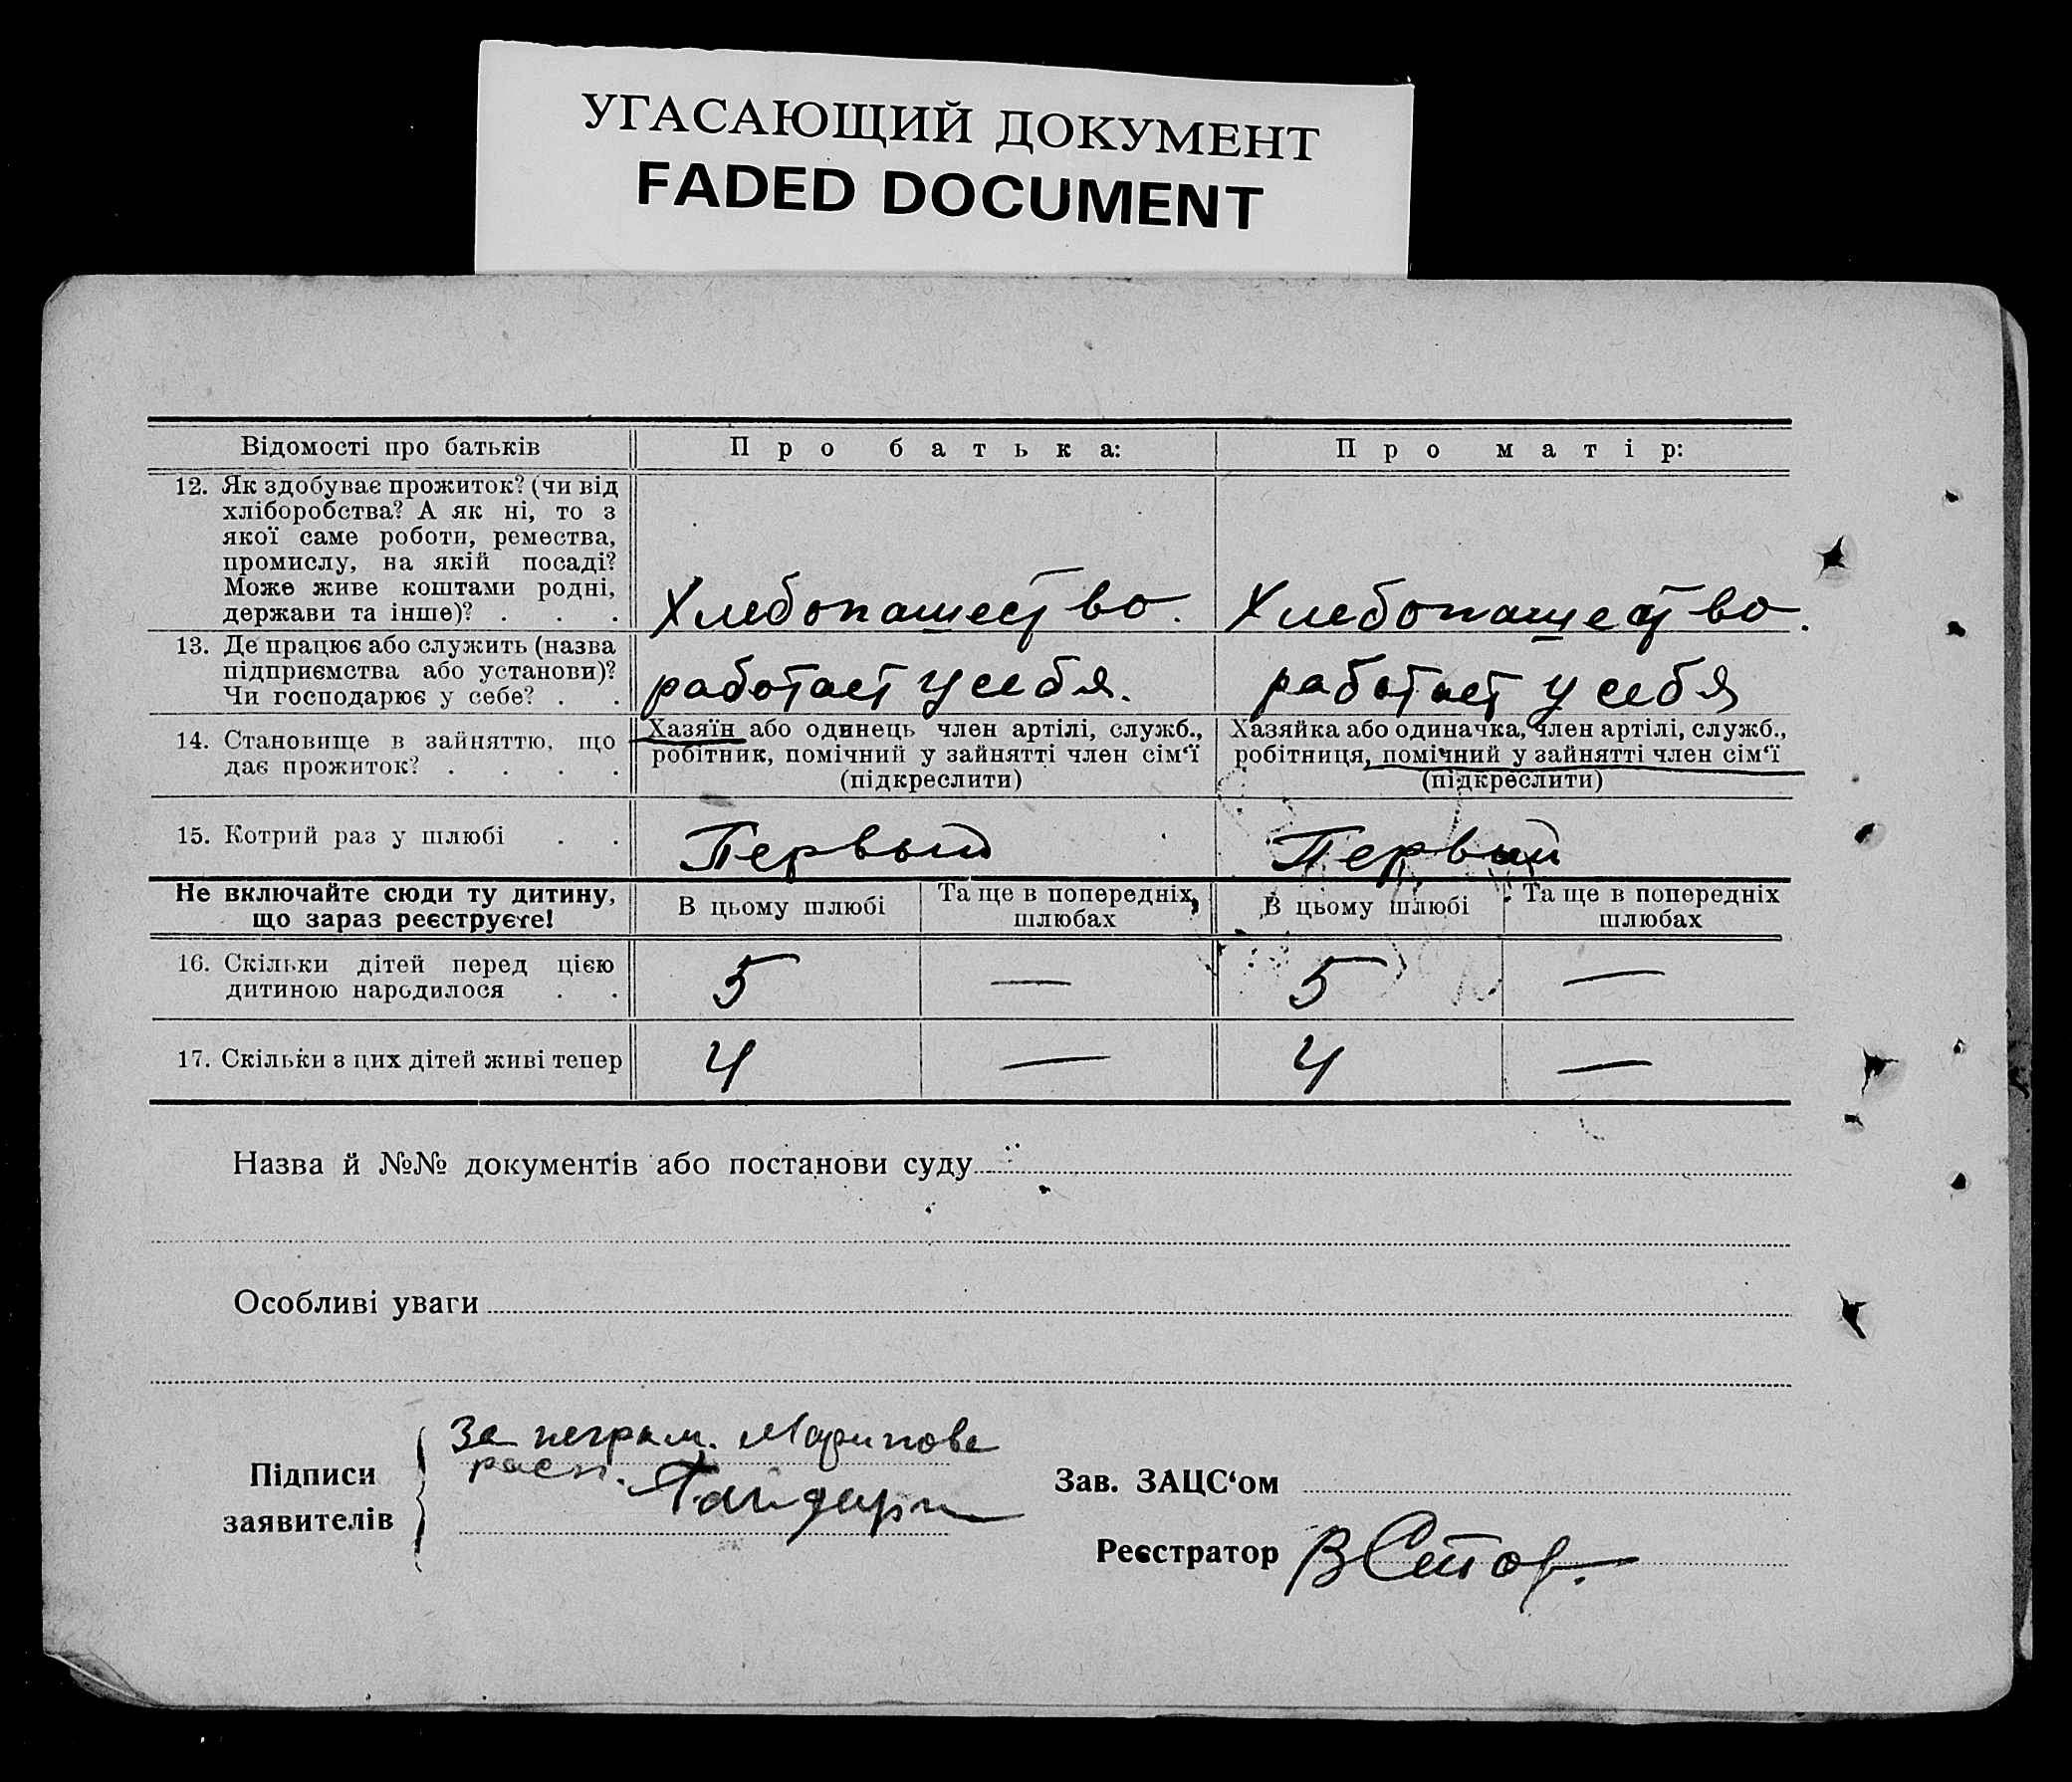 УГАСАЮЩИЙ ДОКУМЕНТ
FADED DOCUMENT
Відомості про батьків
Про батька:
Про матір:
12. Як здобуває прожиток? (чи від
хліборобства? А як ні, то з
якої саме роботи, ремества,
промислу, на якій посаді?
Може живе коштами родні,
держави та інше)? . . .
Хлебопашество.
Хлебопашество.
13. Де працює або служить (назва
підприємства або установи)?
Чи господарює у себе? . .
работает у себя.
работает у себя
14. Становище в зайняттю, що
дає прожиток? . . . .
Хазяїн або одинець член артілі, служб.,
робітник, помічний у зайнятті член сім‘ї
(підкреслити)
Хазяйка або одиначка, член артілі, служб.,
робітниця, помічний у зайнятті член сім‘ї
(підкреслити)
15. Котрий раз у шлюбі . .
Первый
Первый
Не включайте сюди ту дитину,
що зараз реєструєте!
В цьому шлюбі
Та ще в попередніх
шлюбах
В цьому шлюбі
Та ще в попередніх
шлюбах
16. Скільки дітей перед цією
дитиною народилося . .
5
—
5
—
17. Скільки з цих дітей живі тепер
4
—
4
—
Назва й №№ документів або постанови суду
Особливі уваги
Підписи
заявителів
За неграм.
расп.
Зав. ЗАЦС‘ом
Реєстратор